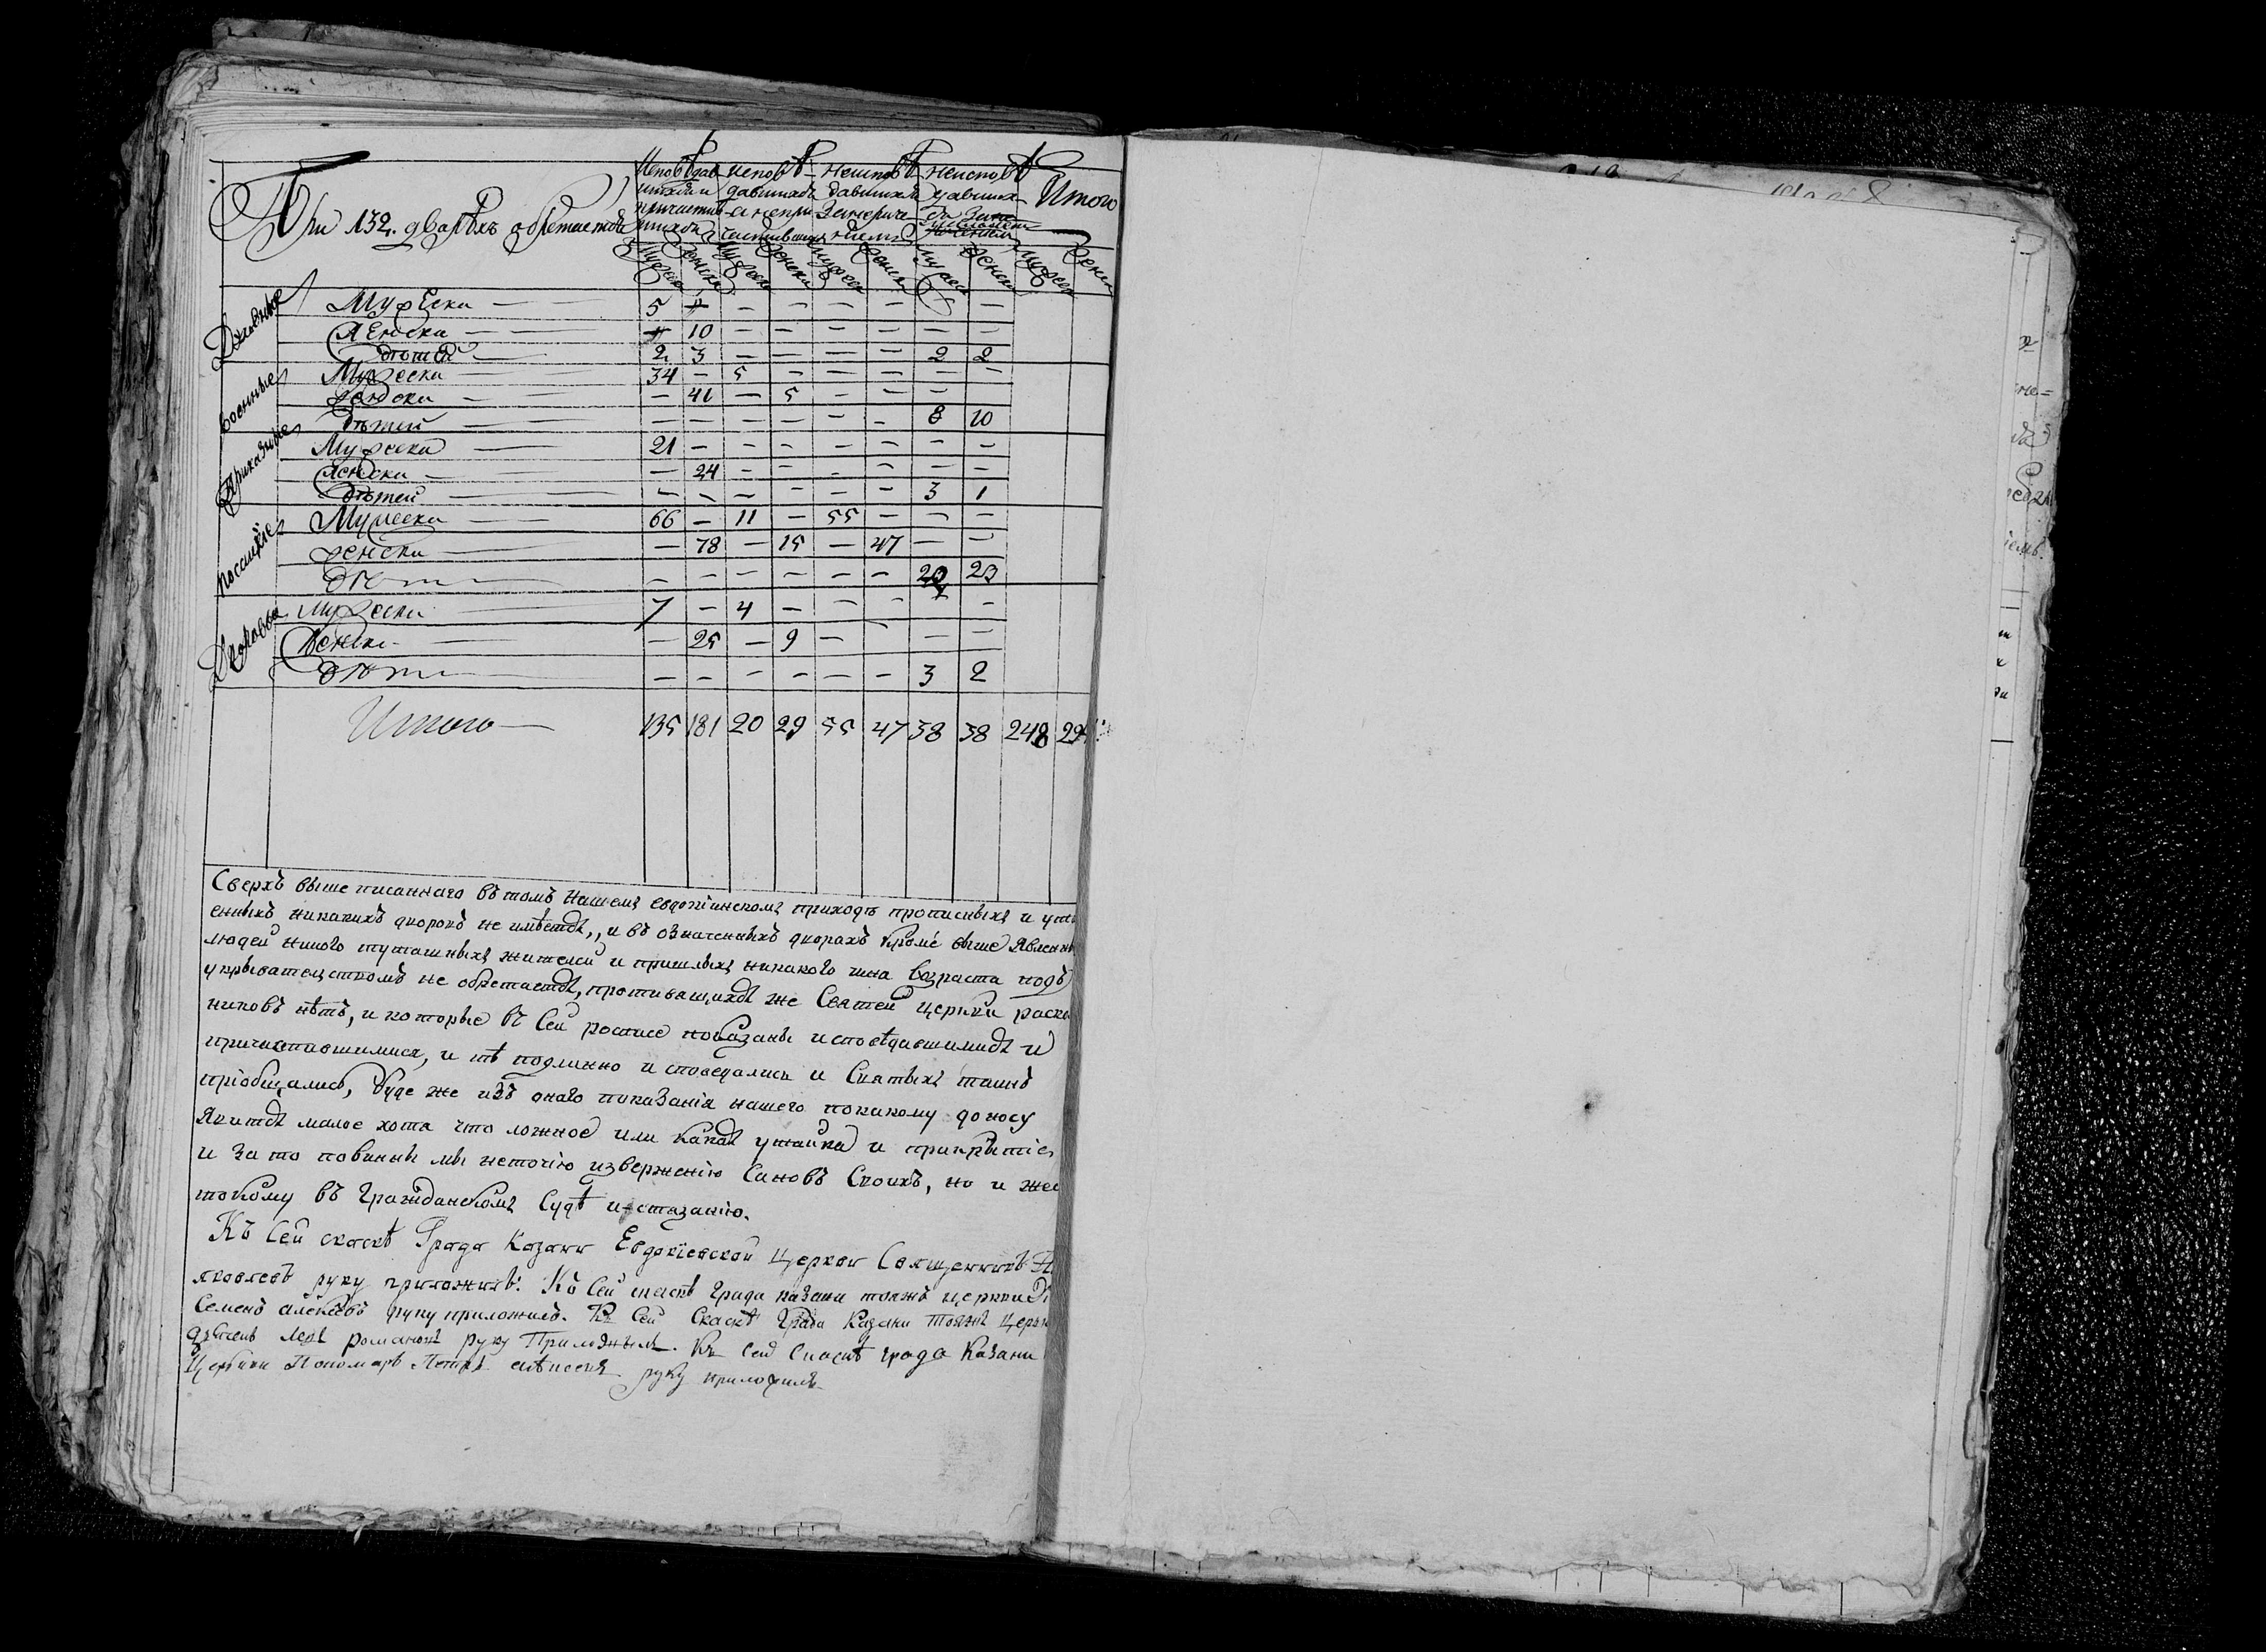 При 132. дворѣхъ обретается
Исповѣдав
шихся и
причастив
шихся
исповѣ
давшихся
а непри
частившихся
неисповѣ
давшихся
неисповѣ
Итого
Мужеска Женска Мужеска Женска Мужеска Женска Мужеска Женска Мужеска Женска
Духовные
Мужеска 5 — — — — — — —
Женска 10 — — — — — —
дѣтей 2 3 — — — — 2 2
военные
Мужеска 34 — 5 — — — — —
Женска — 41 — 5 — — —
дѣтей — — — — — — 8 10
Приказные
Мужеска 21 — — — — — — —
Женска — 24 — — — — — —
дѣтей — — — — — — 3 1
посацкїе
Мужеска 66 — 11 — 55 — — —
женска — 78 — 15 — 47 — —
дѣти — — — — — — 23
Дворовые
мужеска 7 — 4 — — — — —
Женска — 25 — 9 — — —
дѣти — — — — — — 3 2
Итого 135 181 20 29 55 47 38 38 248
Сверхъ выше писаннаго въ томъ нашемъ евдокїинскомъ приходѣ прописныхъ и ута
енныхъ никакихъ дворовъ не имѣется, и въ означенныхъ дворахъ кроме выше явленн
людей никого тутошныхъ жителей и пришлыхъ никакого чина возраста подъ
укрывателством не обретается, противящихся же Святей церкви раско
никовъ нѣтъ, и которые въ сей росписе показаны исповѣдавшимися и
причистившимися, и тѣ подлинно исповедались и Святыхъ таинъ
прїобщались, буде же изъ онаго показанїя нашего покакому доносу
явится малое хотя что ложное или какая утайка и прикрытїе
и за то повинны мы неточїю изверженїю Сановъ Своихъ, но и жес
токому въ гражданскомъ Судѣ истязанїю.
Къ сей скаскѣ града Казани Евдокїевской церкви Священникъ
яковлевъ руку приложилъ. Къ сей скаскѣ града казани тояжъ церкви
Семенъ алексѣевъ руку приложилъ. Къ сей скаскѣ града Казани тояжъ церк
дьячекъ левъ романовъ руку Приложилъ. Къ сей скаскѣ града Казани
Церкви Пономарь Петръ руку приложилъ